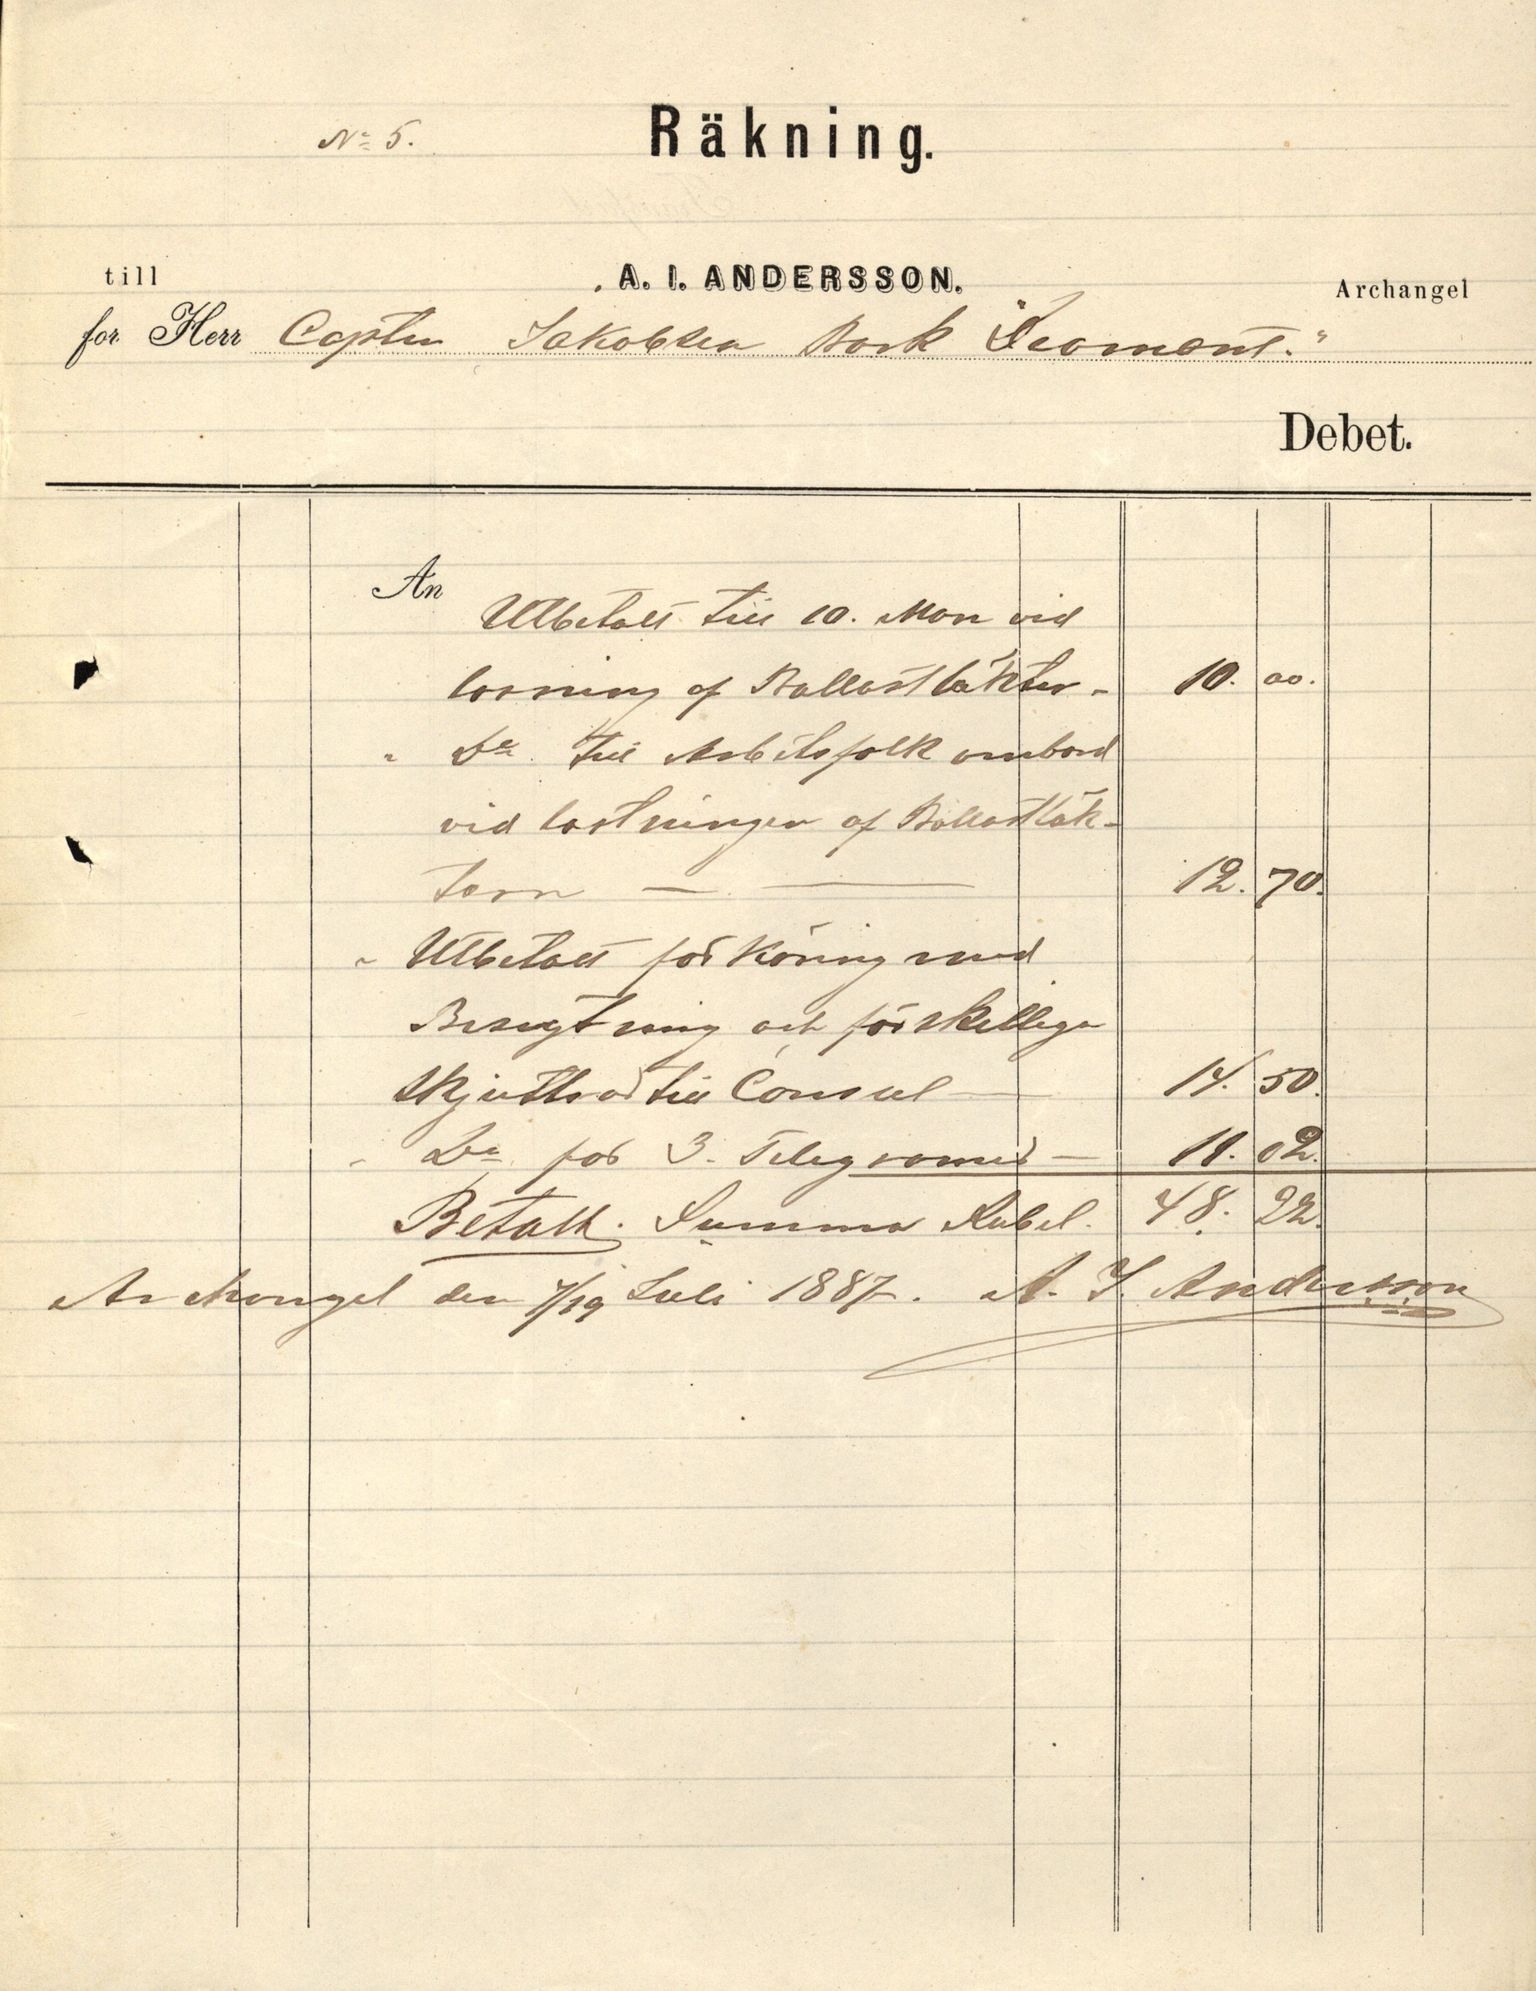 No 5.
Räkning.
till A. I. ANDERSSON. Archangel
for Herr Capten Jakobsen Bark "Diamant."
Debet.
An
Utbetalt till 10. Man vid
losning af Ballastläkter - 10. 00.
" Do. till Arbetsfolk ombord
vid lastningen af Ballastläk-
tern — — 12. 70.
" Utbetalt for Köring med
Besigtning och förskellige
Skjuttsar till Consul — 14. 50.
" Do for 3. Telegramer — 11. 02.
Betalt. Summa Rubel. 48. 22.
Archangel den 7/19 Juli 1887. A. I. Andersson